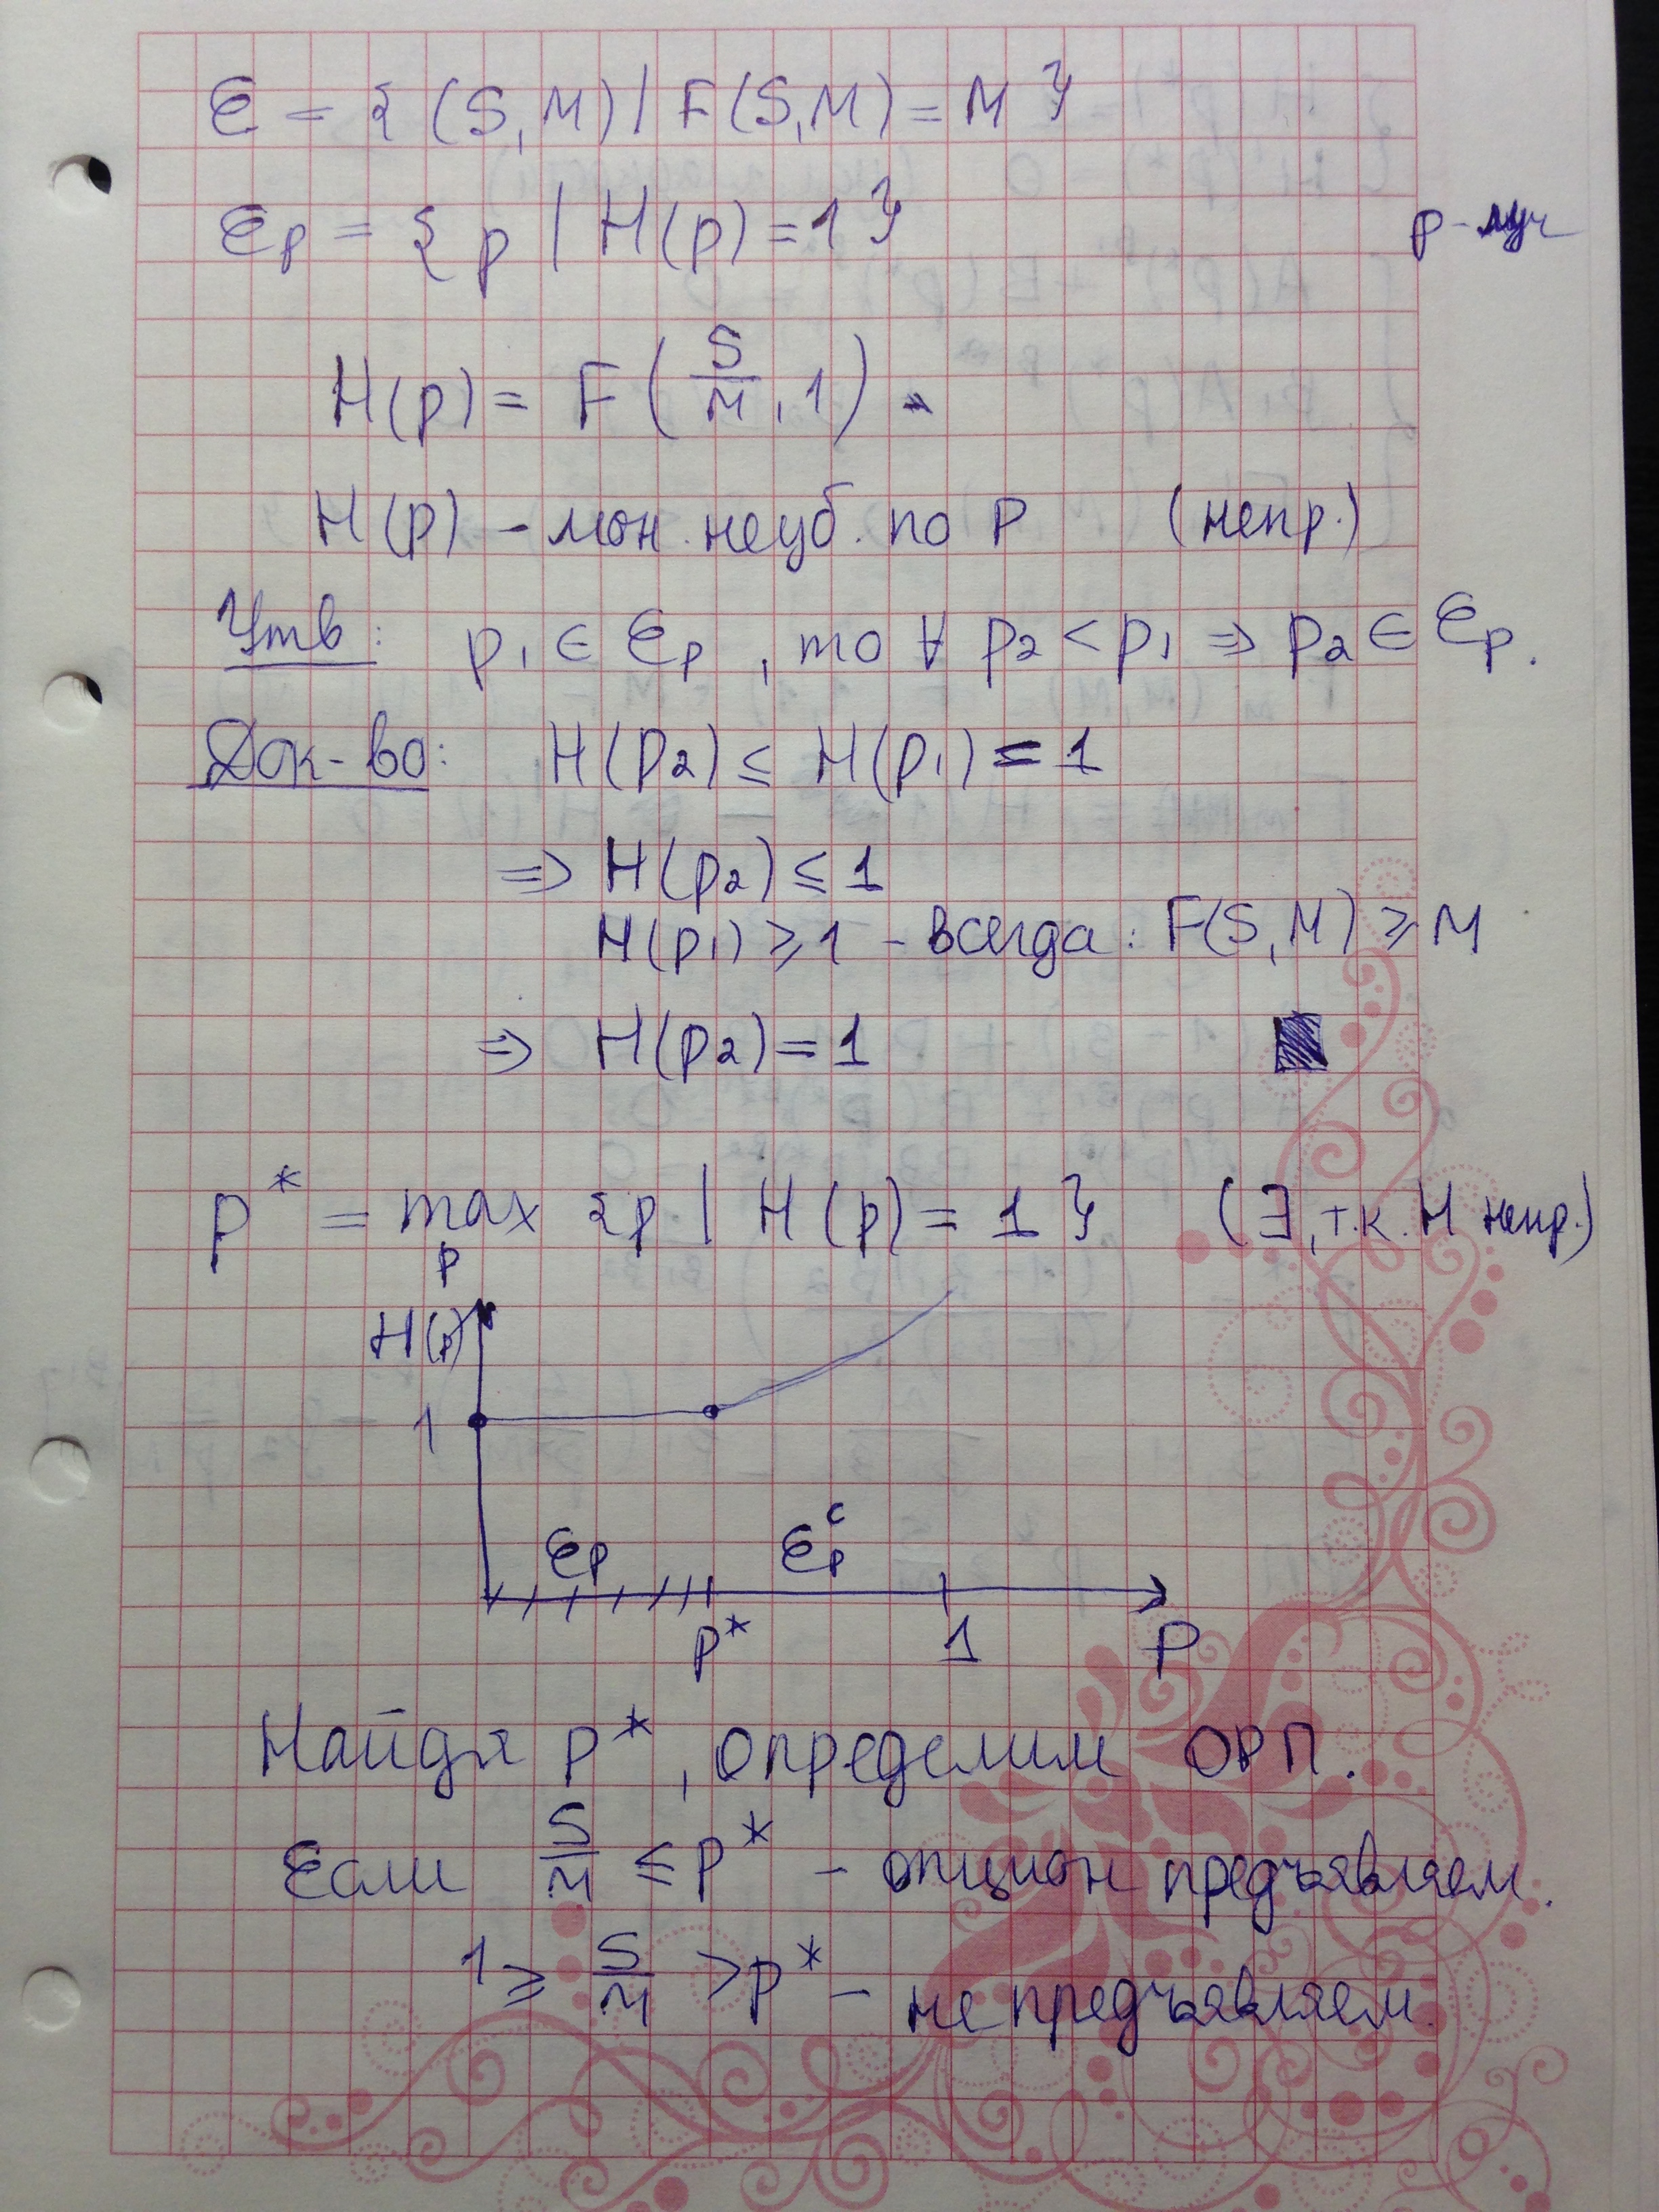 ℰ = { (S, M) | F(S, M) = M }
ℰp = { p | H(p) = 1 }
p - луч
H(p) = F( S/M , 1 )
H(p) - мон. неуб. по P (непр.)
Утв: p₁ ∈ ℰp , то ∀ p₂ < p₁ ⇒ p₂ ∈ ℰp.
Док-во: H(p₂) ≤ H(p₁) = 1
⇒ H(p₂) ≤ 1
H(p₁) ≥ 1 - всегда : F(S, M) ≥ M
⇒ H(p₂) = 1
P* = max {p | H(p) = 1} (∃, т.к. H непр.)
p
H(p)
1
ℰp ℰpᶜ
P* 1 P
Найдя P*, определим ОРП.
Если S/M ≤ P* - опцион предъявляем.
1 ≥ S/M > P* - не предъявляем.